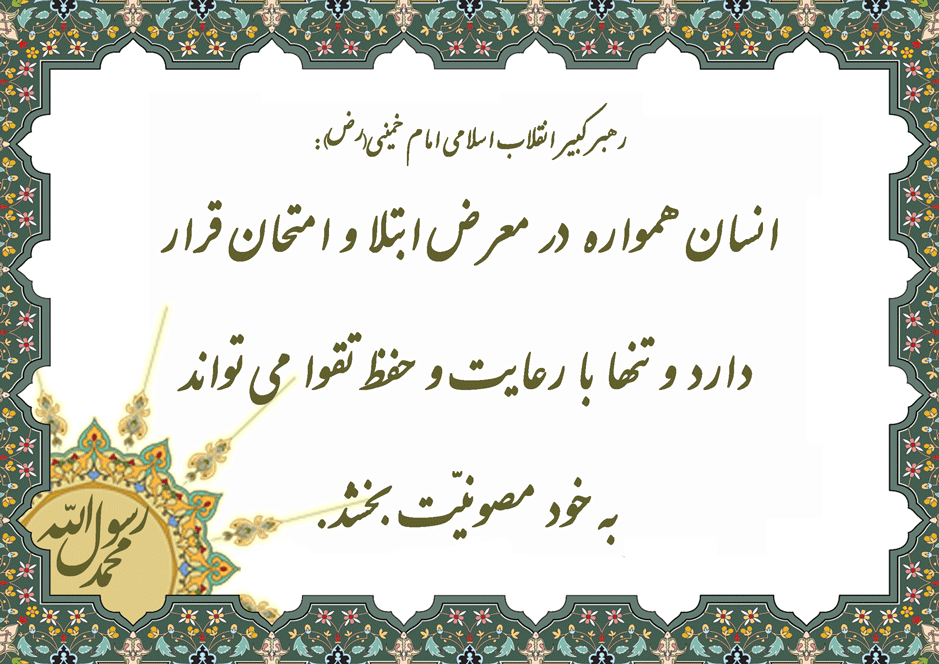 رهبر کبیر انقلاب اسلامی امام خمینی(رض):
انسان همواره در معرض ابتلا و امتحان قرار
دارد و تنها با رعایت و حفظ تقوا می تواند
به خود مصونیّت بخشد.
محمد رسول الله